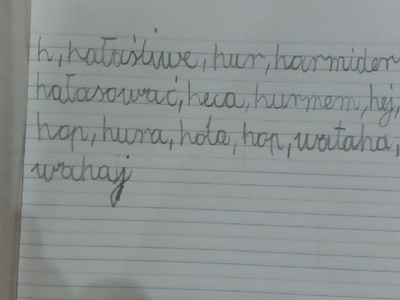 h, hałaśliwe, hur, harmider
hałasować, heca, hurmem, hej,
hop, hura, hola, hop, wataha,
wahaj